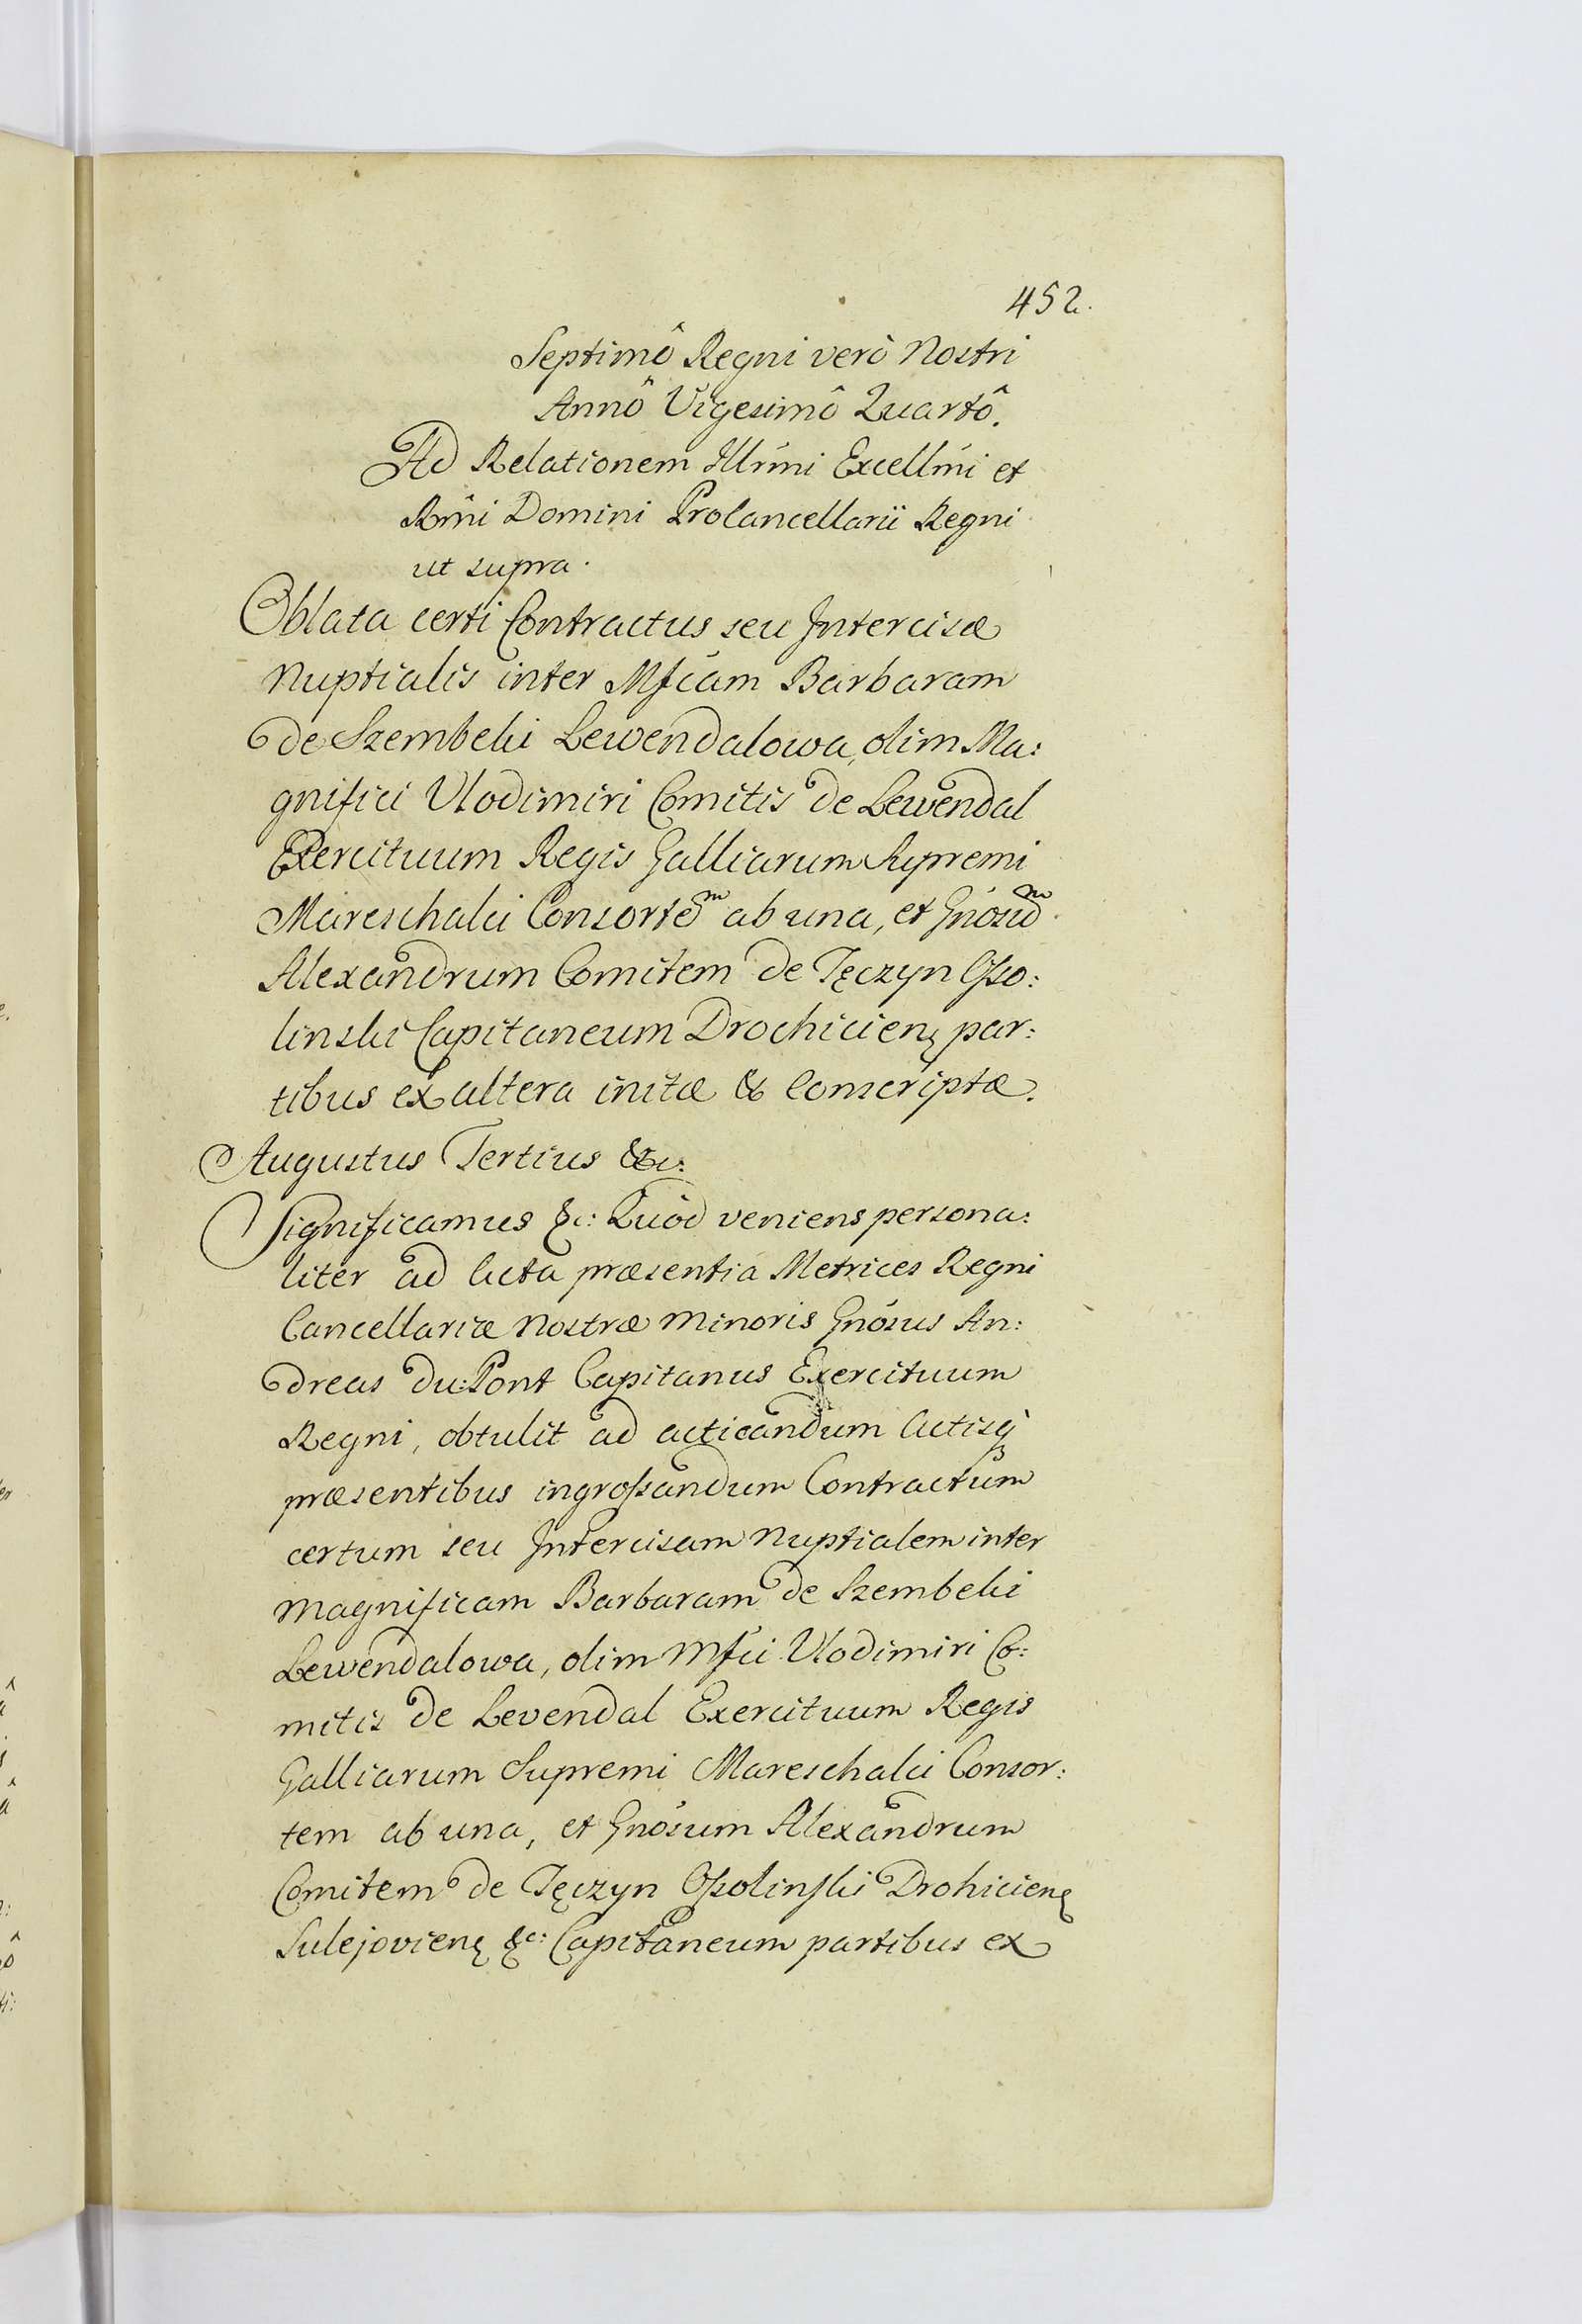 452.
Septimô Regni verò Nostri
Annô Vigesimô Quartô.
Ad Relationem Illrmi Excellmi et
Rmi Domini ProCancellarii Regni
ut supra.
Oblata certi Contractus seu Intercisæ
Nuptialis inter Mfcam Barbaram
de Szembeki Lewendalowa, olim Ma:
gnifici Vlodimiri Comitis de Lewendal
Exercituum Regis Galliarum Supremi
Mareschalci Consortem ab una, et Gnosum
Alexandrum Comitem de Tęczyn Osso:
linski Capitaneum Drochicieñ par:
tibus ex altera initæ & Conscriptæ.
Augustus Tertius &c:
Significamus &c: Quòd veniens persona:
liter ad Acta præsentia Metrices Regni
Cancellariæ Nostræ Minoris Gnosus An:
dreas du:Pont Capitanus Exercituum
Regni, obtulit ad acticandum Actisq
præsentibus ingrossandum Contractum
certum seu Intercisam Nuptialem inter
Magnificam Barbaram de Szembeki
Lewendalowa, olim Mfci Vlodimiri Co:
mitis de Levendal Exercituum Regis
Galliarum Supremi Mareschalci Consor:
tem ab una, et Gnosum Alexandrum
Comitem de Tęczyn Ossolinski Drohicieñ
Sulejovieñ &c: Capitaneum partibus ex